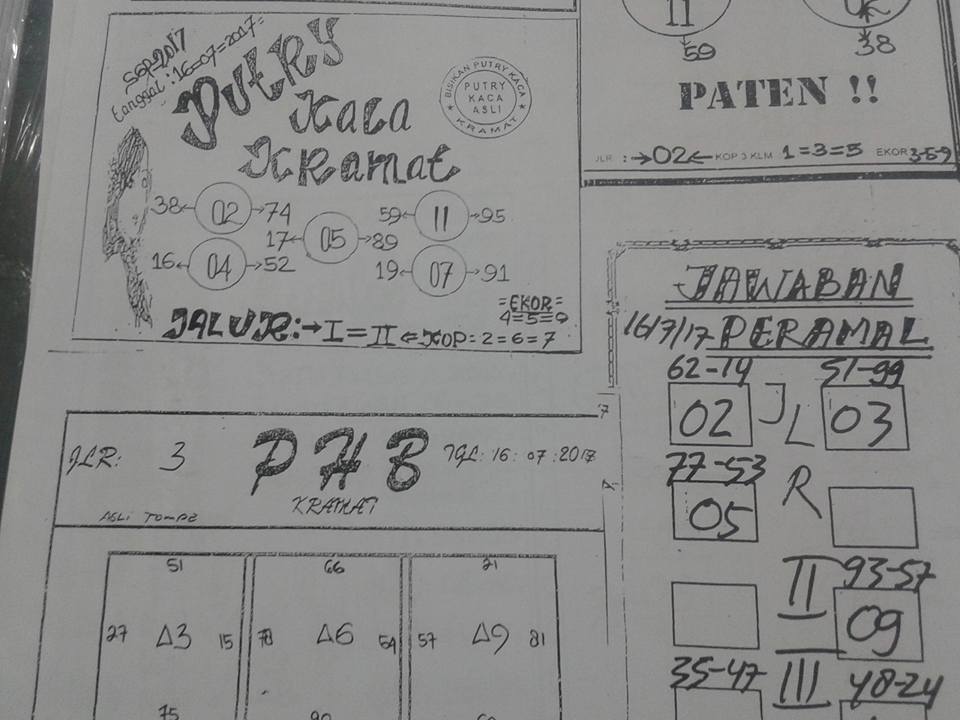 SGP2017
tanggal : 16=07=2017=
Putry
Kaca
Kramat
BISIKAN PUTRY KACA
PUTRY
KACA
ASLI
KRAMAT
38 02 74
59 11 95
17 05 89
16 04 52
19 07 91
=EKOR=
JALUR:→I=II←KOP:2=6=7
11
59
38
PATEN !!
JLR : →02← KOP 3 KLM 1=3=5 EKOR 3-5-9
JLR: 3
PHB
TGL: 16:07:2017
KRAMAT
51
27 Δ3 15
75
66
78 Δ6 54
90
21
57 Δ9 81
JAWABAN
16/7/17 PERAMAL
62-14 51-99
02 JL 03
77-53
05 R
II 93-57
09
35-47 III 48-24